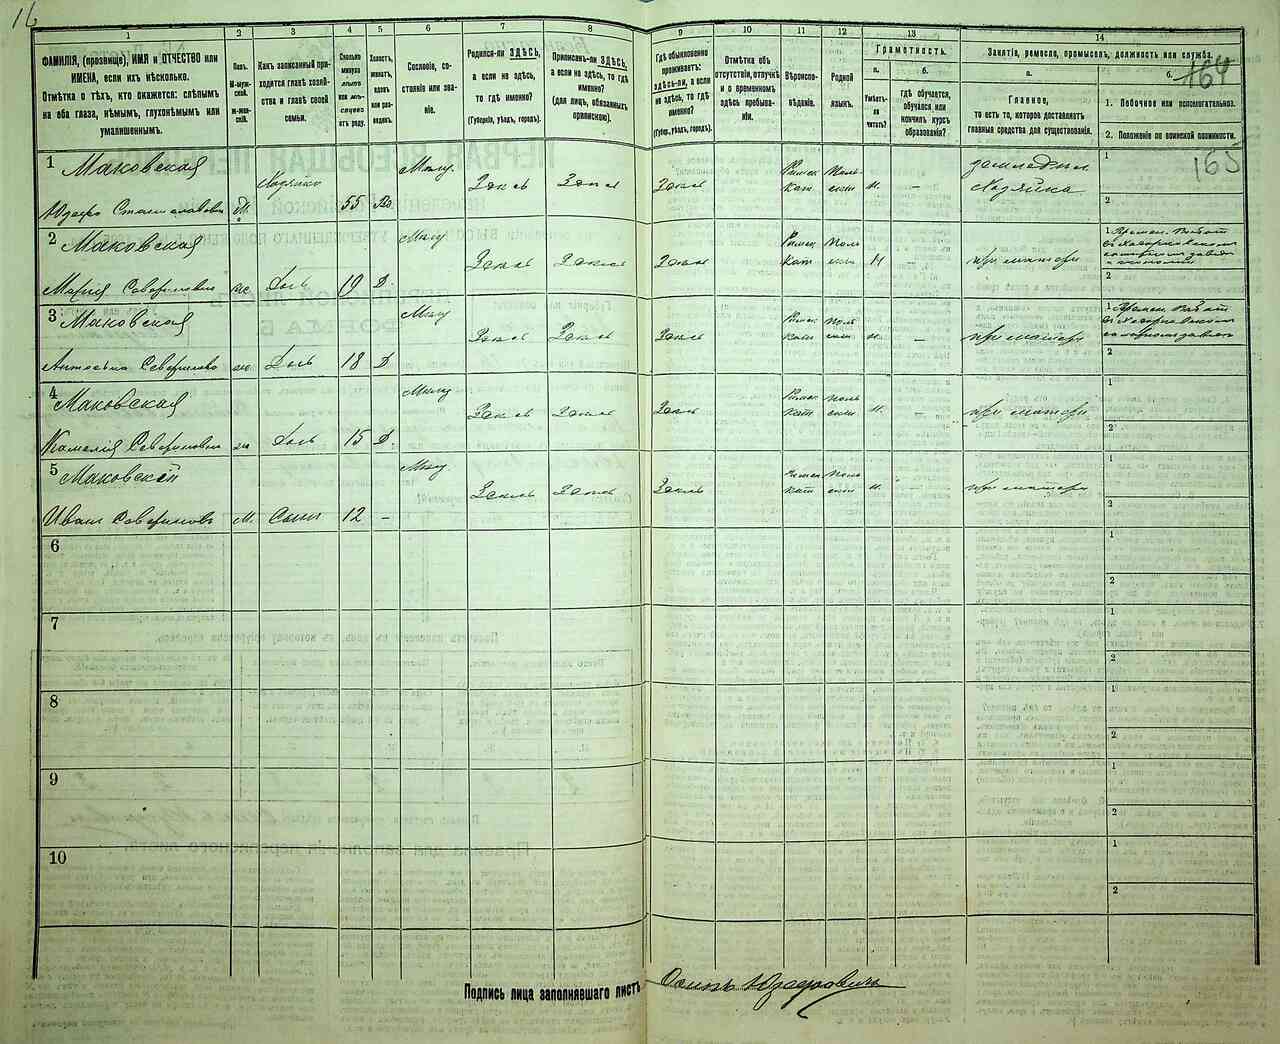 16
1
2
3
4
5
6
7
8
9
10
11
12
13
14
ФАМИЛІЯ, (прозвище), ИМЯ и ОТЧЕСТВО или
ИМЕНА, если ихъ нѣсколько.
Отмѣтка о тѣхъ, кто окажется: слѣпымъ
на оба глаза, нѣмымъ, глухонѣмымъ или
умалишеннымъ.
Полъ.
М-муж-
ской.
Ж-жен-
скій.
Какъ записанный при-
ходится главѣ хозяй-
ства и главѣ своей
семьи.
Сколько
минуло
лѣтъ
или мѣ-
сяцевъ
отъ роду.
Холостъ,
женатъ,
вдовъ
или раз-
веденъ.
Сословіе, со-
стояніе или зва-
ніе.
Родился-ли ЗДѢСЬ,
а если не здѣсь,
то гдѣ именно?
(Губернія, уѣздъ, городъ).
Приписанъ-ли ЗДѢСЬ,
а если не здѣсь, то гдѣ
именно?
(для лицъ, обязанныхъ
припискою).
Гдѣ обыкновенно
проживаетъ:
здѣсь-ли, а если
не здѣсь, то гдѣ
именно?
(Губер., уѣздъ, городъ).
Отмѣтка объ
отсутствіи, отлучкѣ
и о временномъ
здѣсь пребыва-
ніи.
Вѣроиспо-
вѣданіе.
Родной
языкъ.
Грамотность.
а.
Умѣетъ-
ли
читать?
б.
гдѣ обучается,
обучался или
кончилъ курсъ
образованія?
Занятіе, ремесло, промыселъ, должность или служба.
а.
Главное,
то есть то, которое доставляетъ
главныя средства для существованія.
б.
1. Побочное или вспомогательное.
2. Положеніе по воинской повинности.
164
165
1 Маковская
Хозяйка
Юзефа Станиславовн 55 Вд.
Мѣщ.
Здѣсь Здѣсь Здѣсь
Римск Поль
кат ским н. –
Хозяйка
1
2
2 Маковская
Марія Севериновн Дочь 19 Д.
Мѣщ
Здѣсь Здѣсь Здѣсь
Римск Поль
кат ским н –
при матери
1
2
3 Маковская
Дочь 18 Д
Мѣщ
Здѣсь Здѣсь Здѣсь
Римск Поль
кат ским н. –
при матери
1
2
4 Маковская
Камелія Севериновн Дочь 15 Д.
Мѣщ
Здѣсь Здѣсь Здѣсь
Римск Поль
кат ским н. –
при матери
1
2
5 Маковскій
Иванъ Севериновъ м. Сынъ 12 –
Мѣщ.
Здѣсь Здѣсь Здѣсь
Римск Поль
кат ским н. –
при матери
1
2
6
1
2
7
1
2
8
1
2
9
1
2
10
1
2
Подпись лица заполнявшаго листъ
Осипъ